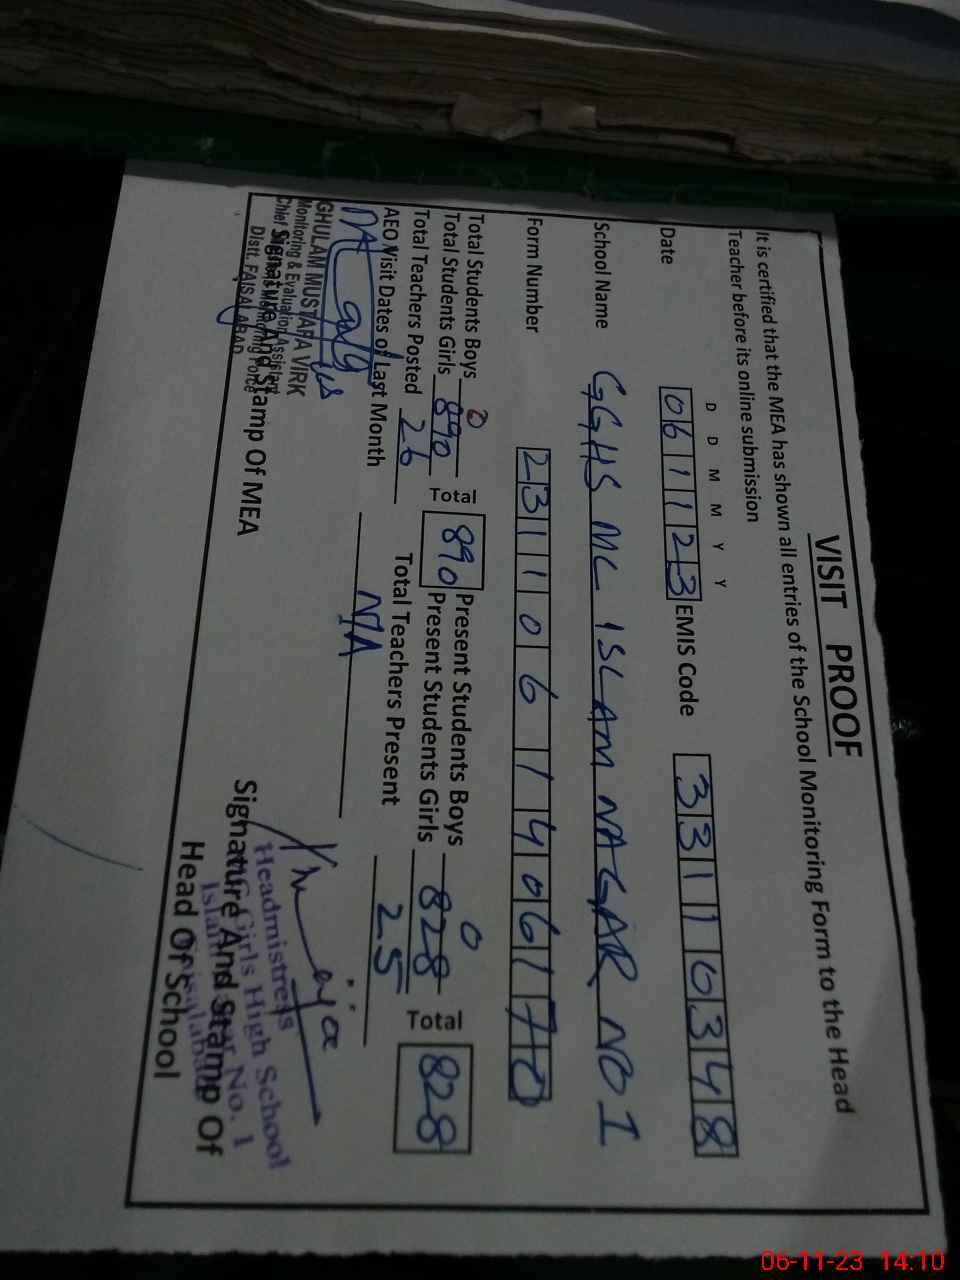 VISIT PROOF
It is certified that the MEA has shown all entries of the School Monitoring Form to the Head
Teacher before its online submission
D D M M Y Y
Date 061123 EMIS Code 33110348
School Name GGHS MC ISLAM NAGAR NO I
Form Number 2311061406170
Total Students Boys 0 Present Students Boys 0
Total Students Girls 890 Total 890 Present Students Girls 828 Total 828
Total Teachers Posted 26 Total Teachers Present 25
AEO Visit Dates of Last Month N/A
GHULAM MUSTAFA VIRK
Monitoring & Evaluation Assistant
Chief Monitoring Force
Distt. FAISALABAD
Signature And Stamp Of MEA
Headmistress
Girls High School
No. 1
Signature And Stamp Of
Head Of School
06-11-23 14:10